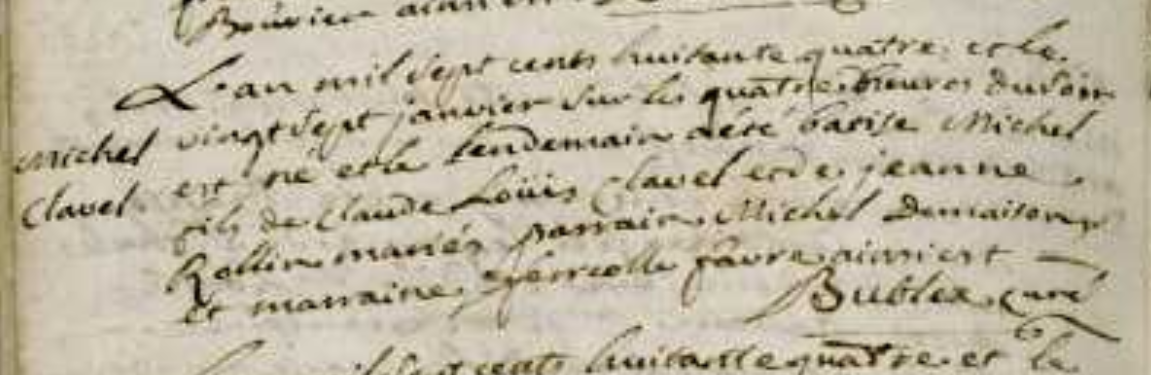 Bouvier ainsi est
L'an mil sept cents huitante quatre et le
Michel vingt sept janvier sur les quatre heures du soir
est né et le lendemain a été batisé Michel
Clavel fils de Claude Loüis Clavel et de jeanne
Rollin mariés parrain Michel Demaison
et marraine favre ainsi est
Bublex, curé
sept cents huitante quatre et le